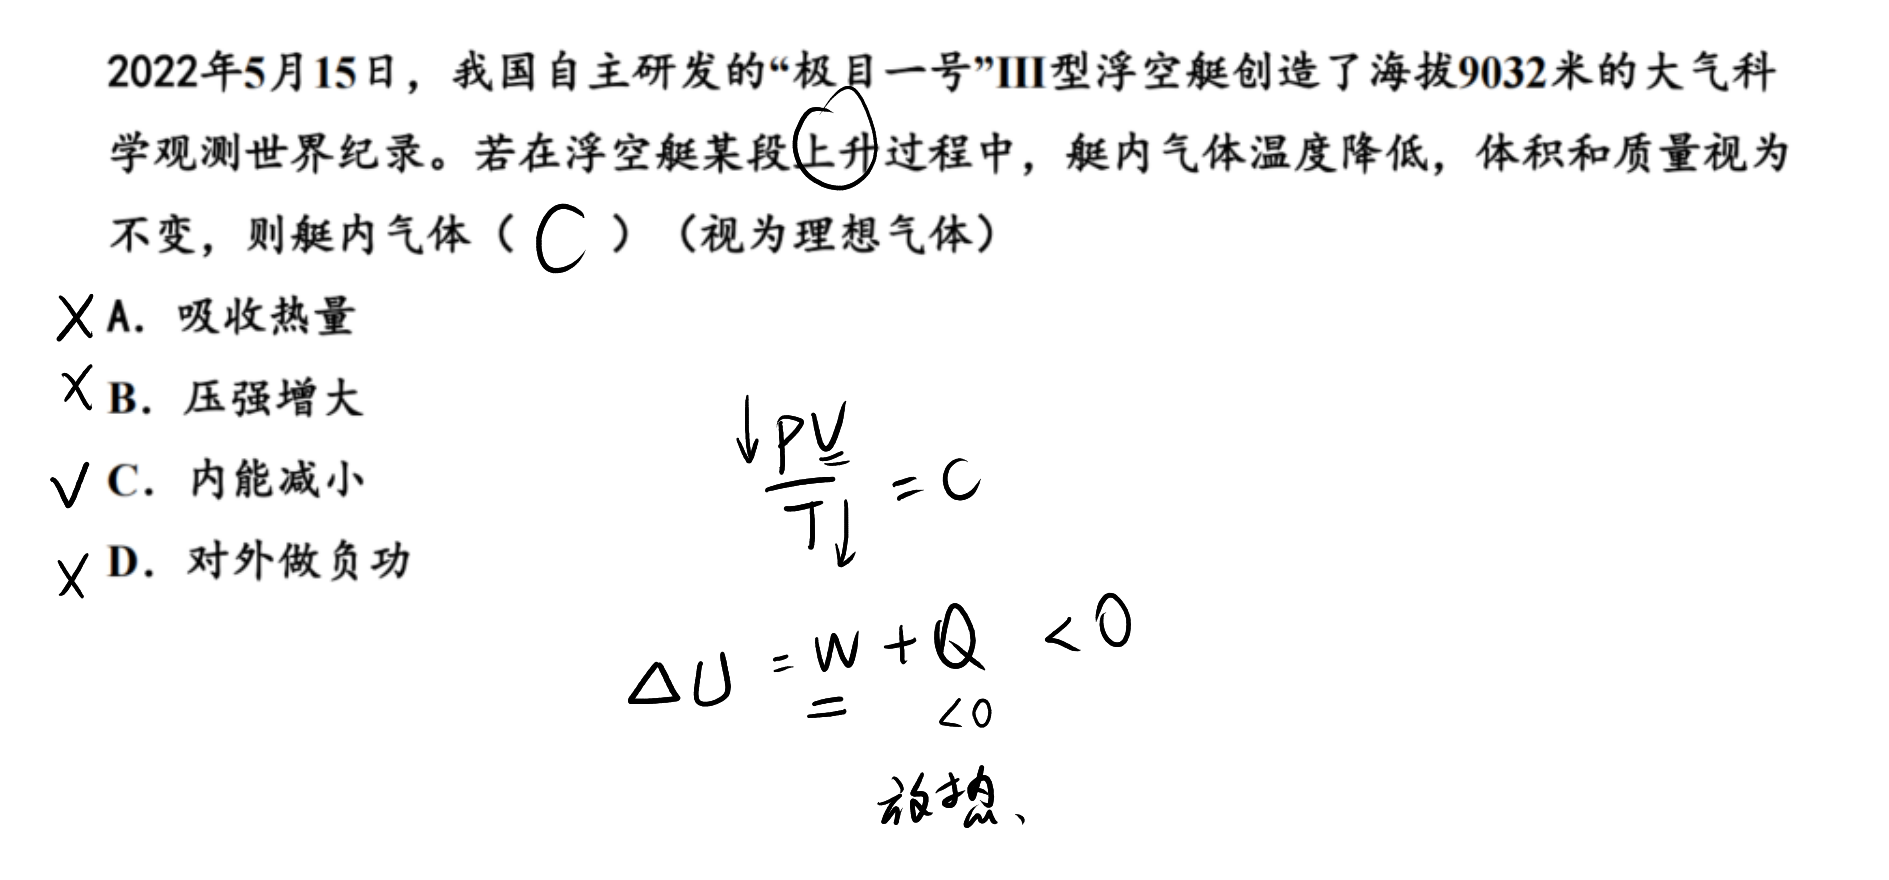 2022年5月15日，我国自主研发的“极目一号”III型浮空艇创造了海拔9032米的大气科
学观测世界纪录。若在浮空艇某段上升过程中，艇内气体温度降低，体积和质量视为
不变，则艇内气体（ C ）（视为理想气体）
X A．吸收热量
X B．压强增大
√ C．内能减小
X D．对外做负功
↓PV
T↓ = C
ΔU = W + Q < 0
= <0
放热、